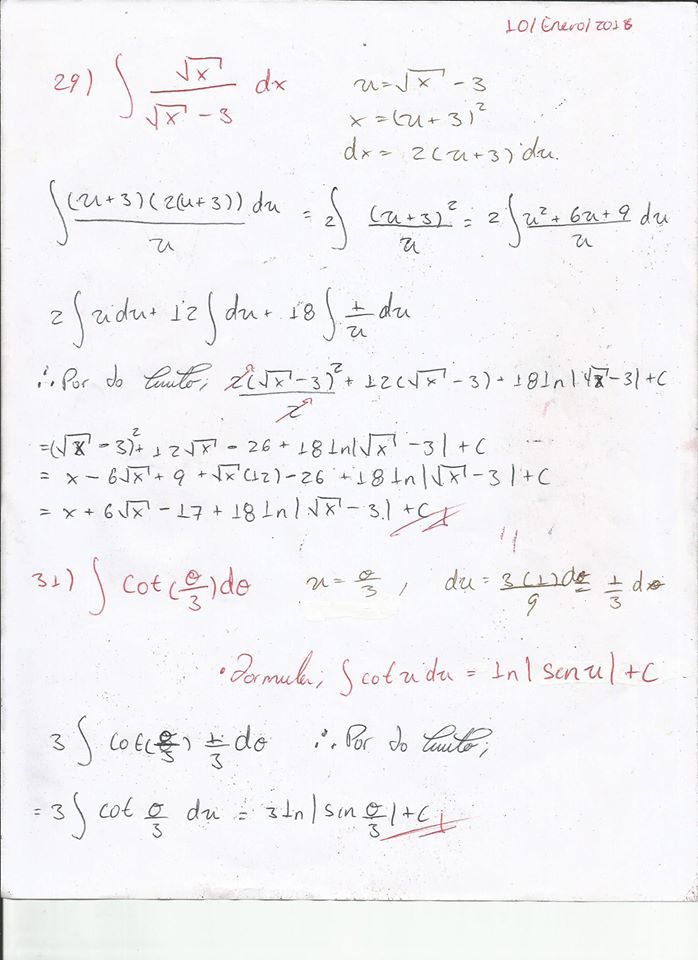 10/Enero/2018
29) ∫ √x / (√x - 3) dx    u = √x - 3
x = (u+3)²
dx = 2(u+3) du.
∫ (u+3)(2(u+3)) du / u = 2∫ (u+3)² / u = 2∫ (u² + 6u + 9) / u du
2∫u du + 12∫du + 18∫ 1/u du
∴ Por do tanto; 2(√x - 3)² / 2 + 12(√x - 3) + 18 ln|√x - 3| + C
= (√x - 3)² + 12√x - 26 + 18 ln|√x - 3| + C
= x - 6√x + 9 + √x(12) - 26 + 18 ln|√x - 3| + C
= x + 6√x - 17 + 18 ln|√x - 3| + C
31) ∫ cot(θ/3) dθ    u = θ/3 ,    du = 3(1)dθ / 9 = 1/3 dθ
• Formula; ∫ cot u du = ln|sen u| + C
3∫ cot(θ/3) 1/3 dθ    ∴ Por do tanto;
= 3∫ cot θ/3 du = 3 ln|sin θ/3| + C